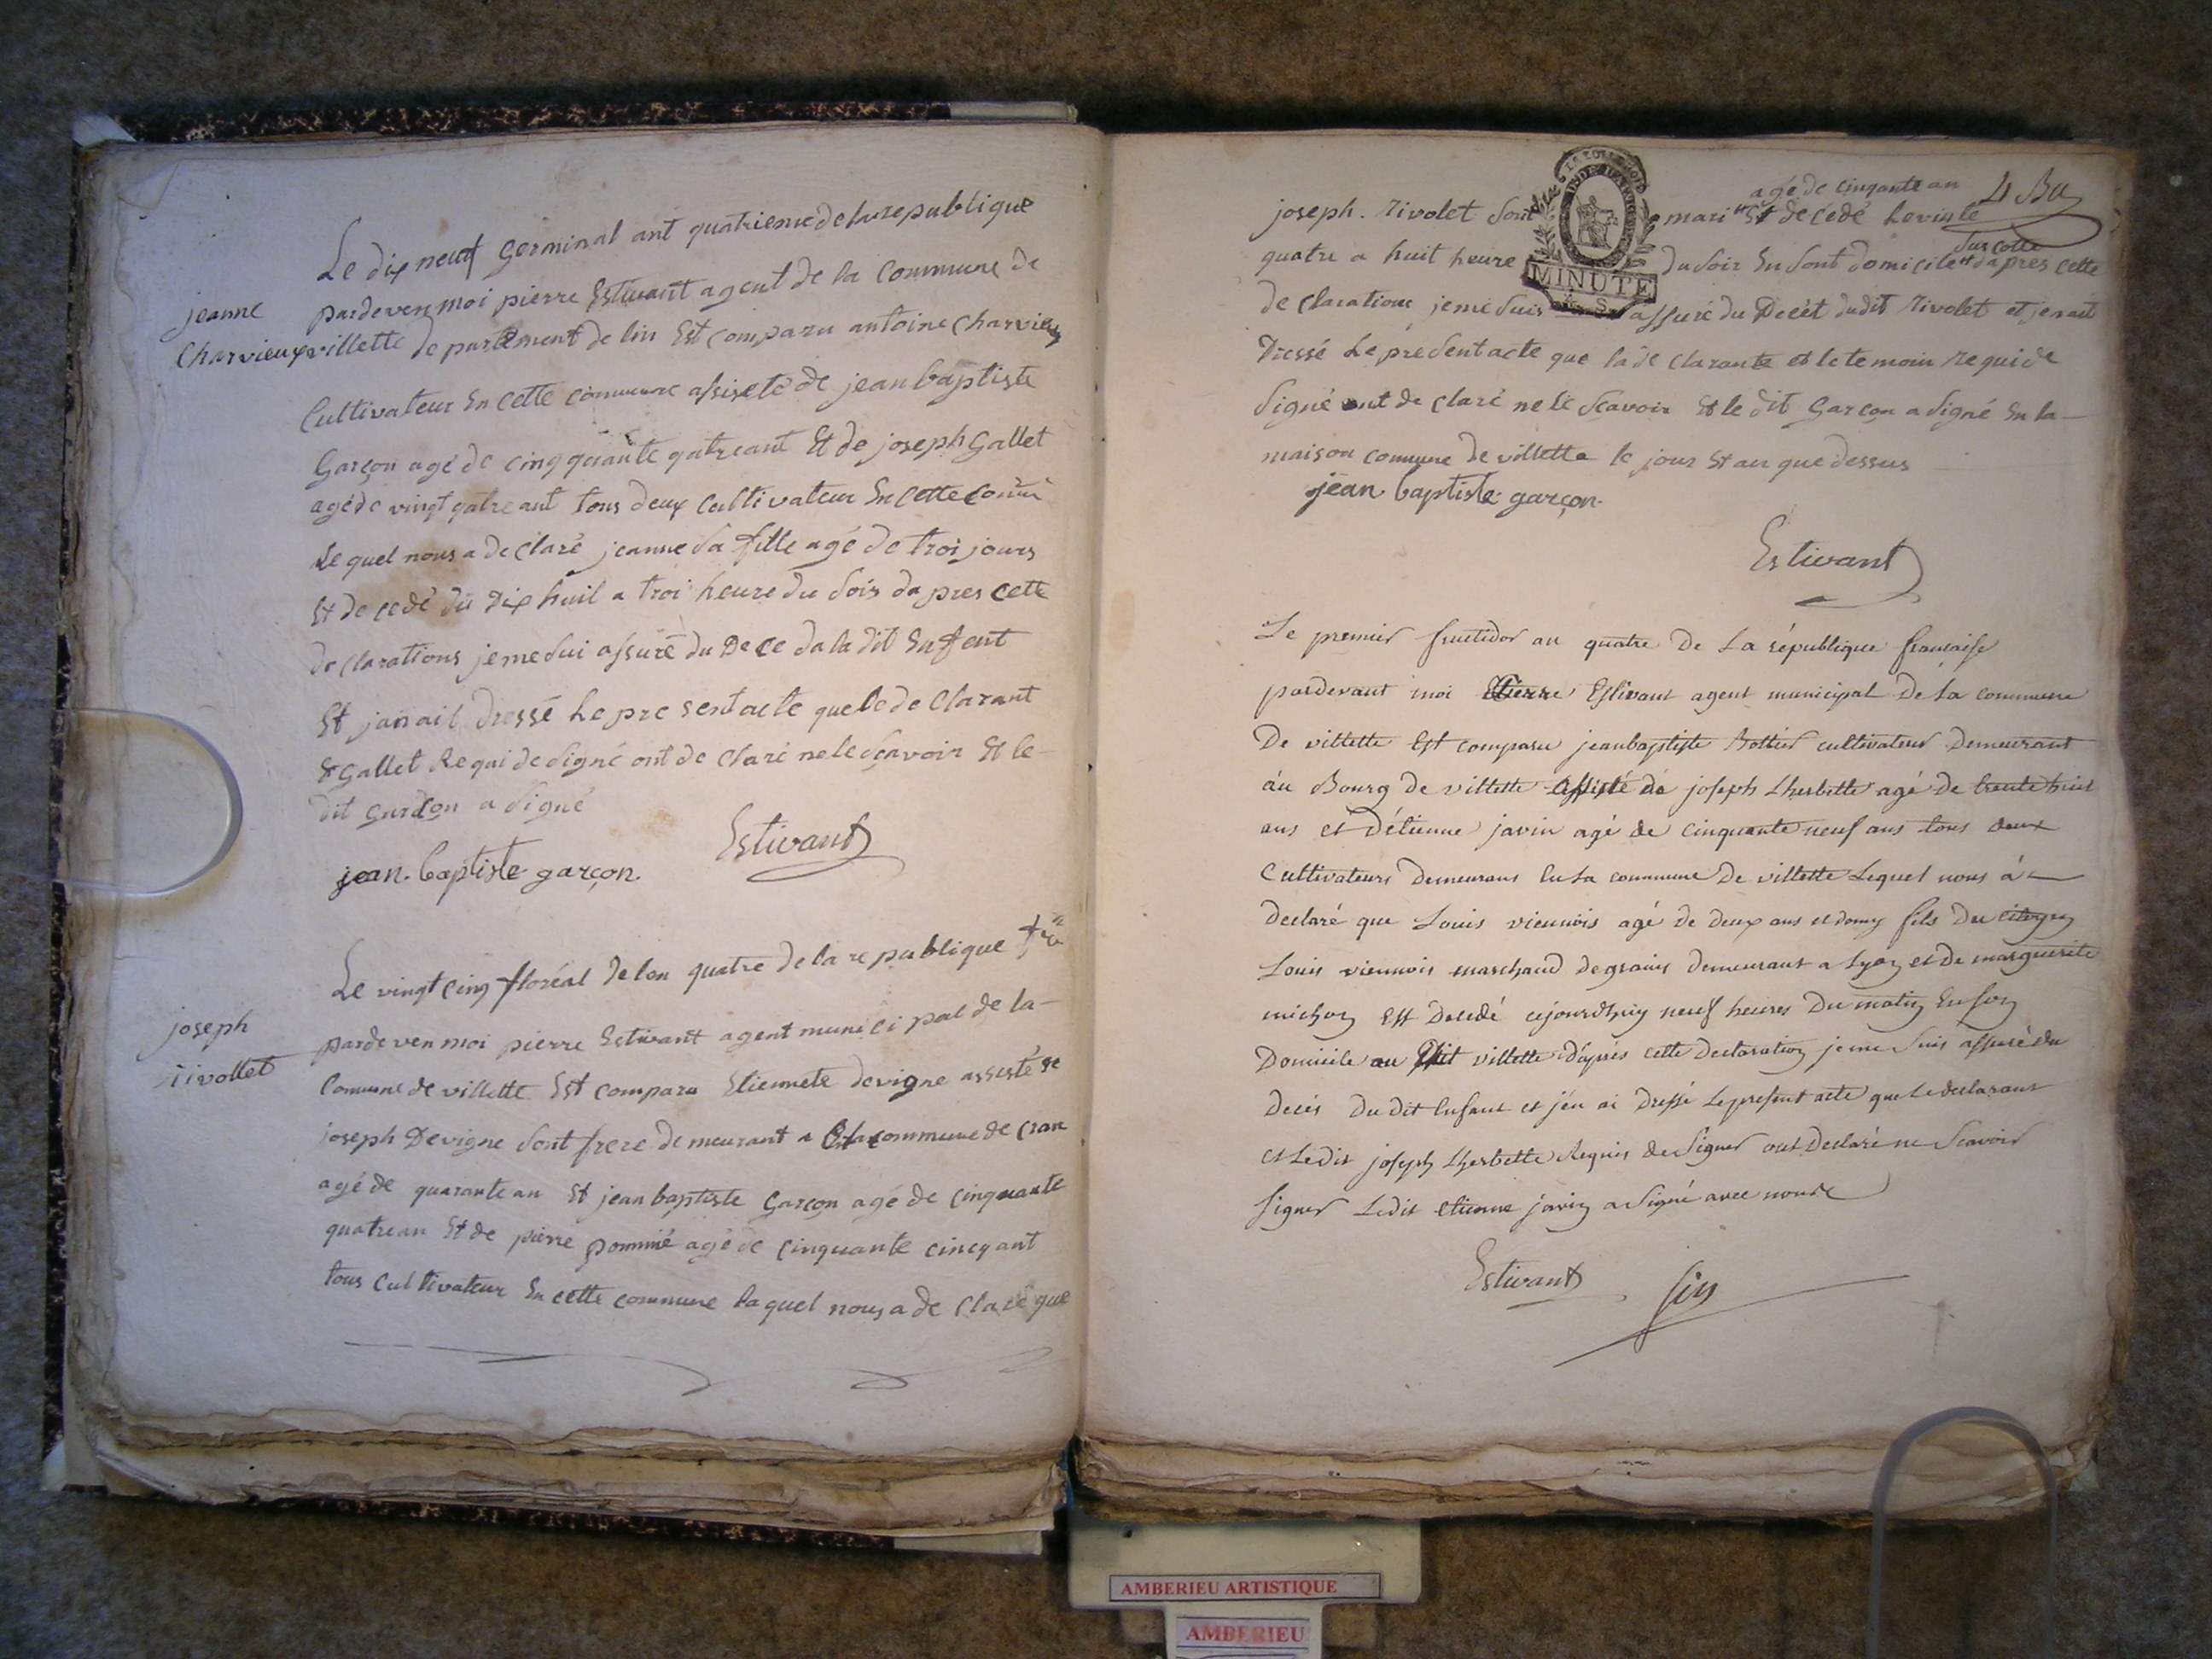 Le dix neuf Germinal ant quatrieme de la republique
jeanne
Charvieux
pardeven moi pierre Estivant agent de la Commune de
villette de partement de lin Est comparu antoine Charvieux
Cultivateur En cette commune assisete de jean baptiste
Garçon agé de cinqquante quatreant Et de joseph Gallet
agé de vingt qatre ant tous deux Cultivateur En cette Comm
Le quel nous a de Claré jeanne sa fille agé de troi jours
Et de cedé du dix huil a troi heure du soir da pres cette
de clarations je me sui assuré du De ce da la dit Enfent
Et jan ait dressé Le pre sent acte que le de Clarant
& Gallet Re qui de signé ont de claré ne le sçavoir Et le
dit garçon a signé
jean baptiste garçon
Estivant
Le vingt cinq floréal de lan quatre de la re publique
joseph
rivollet
pardeven moi pierre Estivant agent muni ci pal de la
Comune de villette Est comparu Etiennete devigne assisté de
joseph Devigne sont frere de meurant a commune de cran
agé de quarante an Et jean baptiste Garçon age de cinquante
quatre an Et de pierre pommié agé de cinquante cincq ant
tous Cultivateur En cette commune laquel nous a de Claré que
agé de cinquante an
joseph. rivolet sont mari Et de cedé Le vinte
quatre a huit heure du soir En sont domicile dapres cette
de claration je me suis assuré du Decét dudit rivolet et jen ait
Dressé Le présent acte que la de clarante et le temoin re qui de
signé ont de claré ne le sçavoir Et le dit Garçon a signé En la
maison commune de villette le jour Et an que dessus
MINUTE
jean baptiste garçon
Estivant
Le premier fructidor an quatre De La république francaise
pardevant moi pierre Estivant agent municipal De La commune
De villette Est comparu jeanbaptiste Bottier cultivateur Demeurant
áu Bourg de villette Assisté de joseph Lherbette agé de trente huit
ans et d'étienne javin agé de cinquante neuf ans tous deux
Cultivateurs Demeurans En La commune De villette Lequel nous á
Declaré que Louis viennois agé de deux ans et demy fils Du citoyen
Louis viennois marchand de grains demeurant a Lyon et de marguerite
michon Est Decedé cejourdhuy neuf heures Du matin En son
Domicile au dit villette d'après cette Declaration je me suis assuré du
Decés Du dit Enfant et j'en ai Dressé Le present acte que Le declarant
et Ledit joseph Lherbette Requis de Signer ont Declaré ne Scavoir
Signer Ledit etienne javin a Signé avec nous
Estivant
AMBERIEU ARTISTIQUE
AMBERIEU